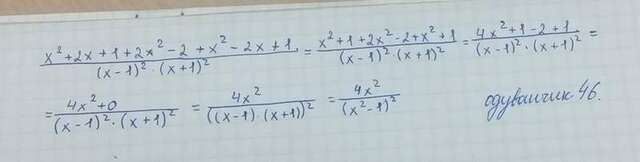 (x²+2x+1+2x²-2+x²-2x+1)/((x-1)²·(x+1)²) = (x²+1+2x²-2+x²+1)/((x-1)²·(x+1)²) = (4x²+1-2+1)/((x-1)²·(x+1)²) =
= (4x²+0)/((x-1)²·(x+1)²) = 4x²/((x-1)·(x+1))² = 4x²/(x²-1)² одуванчик 46.